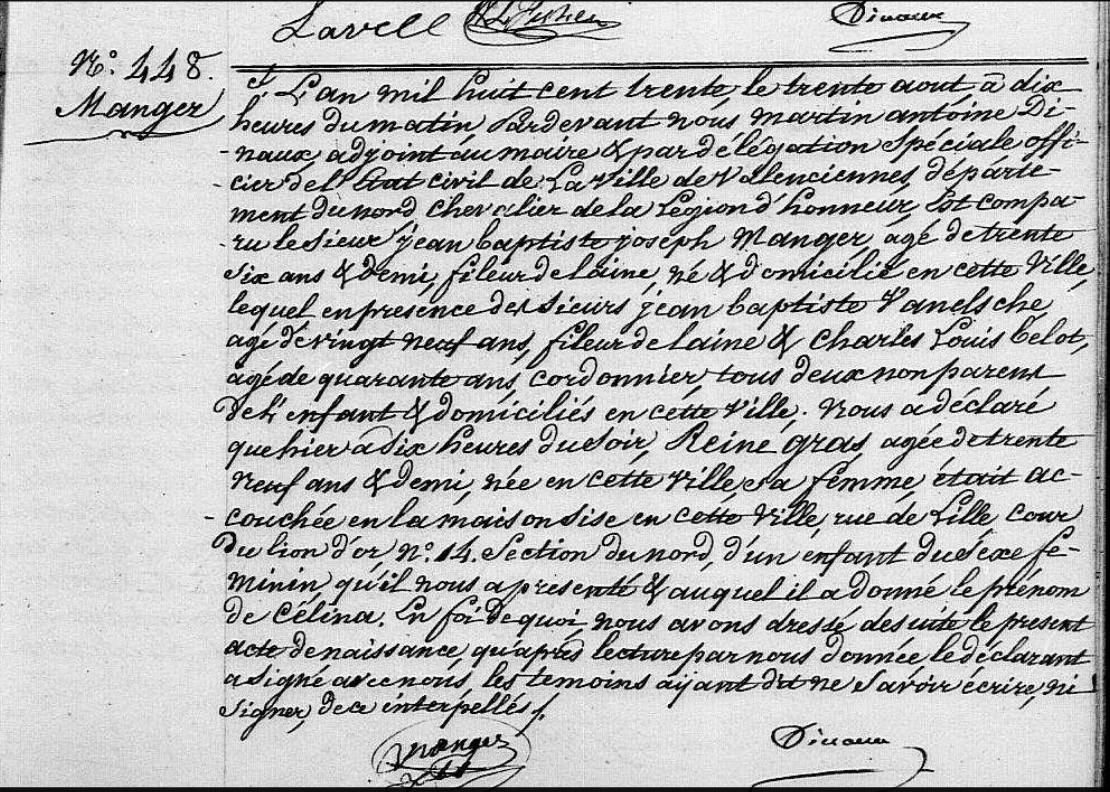 Lavell Dinaux
N.o 448.
Manger
L'an mil huit cent trente, le trente aout, à dix
heures du matin, Pardevant nous martin antoine Di-
-naux, adjoint au maire & par délégation Spéciale offi-
-cier de l'état civil de La ville de Valenciennes, départe-
ment du nord, chevalier de la Légion d'honneur, Est compa-
-ru le Sieur jean baptiste joseph Manger, agé de trente
Six ans & demi, fileur de laine, né & domicilié en cette Ville,
lequel en presence des Sieurs jean baptiste Vanelsche,
agé de vingt neuf ans, fileur de laine & Charles Louis belot,
agé de quarante ans, cordonnier, tous deux non parent
de l'enfant & domiciliés en cette ville. Nous a déclaré
que hier à Six heures du Soir, Reine gras, agée de trente
neuf ans & demi, née en cette ville, Sa femme, était ac-
-couchée en la maison Sise en cette ville, rue de Lille cour
du lion d'or N.o 14. Section du nord, d'un enfant du Sexe fe-
minin, qu'il nous a presenté & auquel il a donné le prénom
de Célina. En foi de quoi, nous avons dressé de Suite le present
acte de naissance, qu'après lecture par nous donnée, le déclarant
a Signé avec nous, les temoins aÿant dit ne Savoir écrire, ni
Signer, de ce interpellés ./.
Manger Dinaux